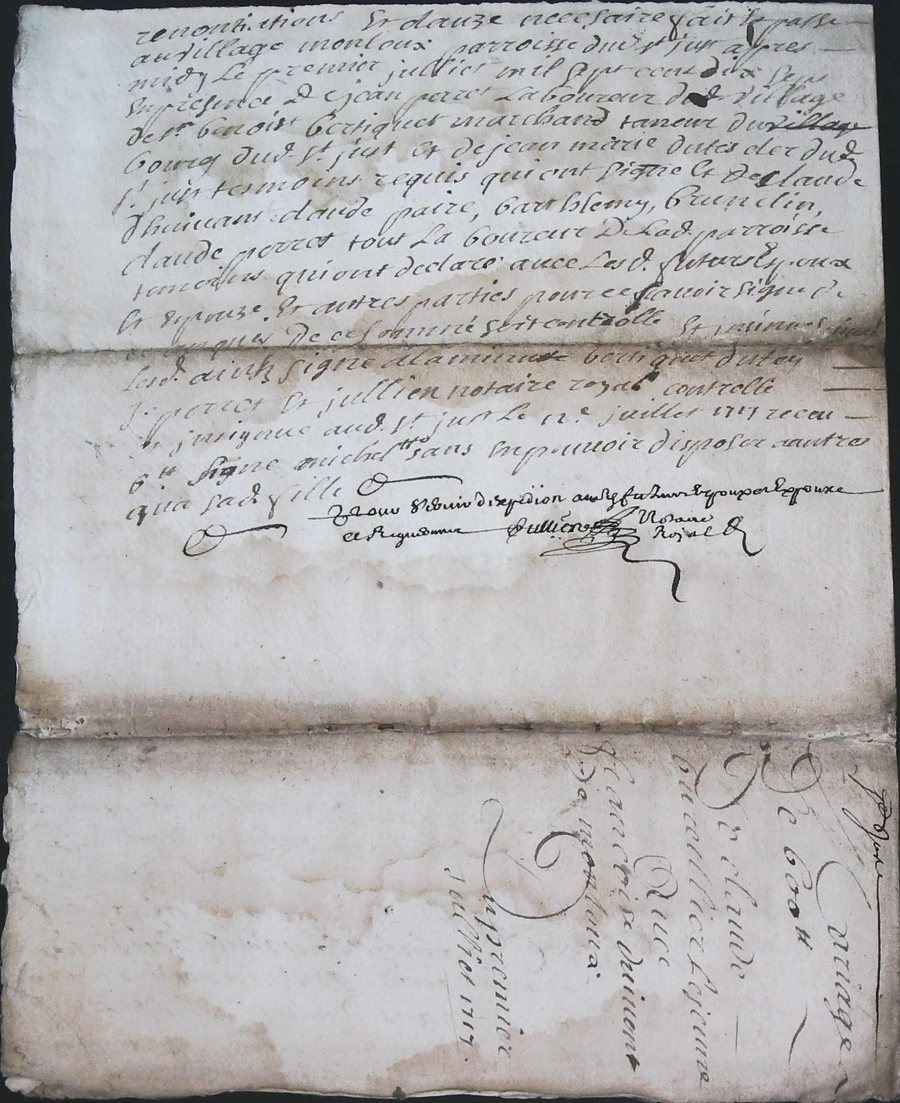 renontiations Et clauze necesaire fait Et passe
au village monloux parroisse dud. st just apres
midy Le premier julliet mil sept cent dix sept
En presence de jean perret Laboureur dud. village
de sr. benoist bertiquet marchand taneur du village
bourg dud. st. just Et de jean marie dutes clerc dud.
st. just tesmoins requis qui ont signe Et de claude
claude paire, barthlemy, brunelin,
claude perret tous La boureur De Lad. parroisse
temoins qui ont declare avec Lesd. futurs Epoux
Et Epouze Et autres parties pour ce scavoir signe de
De ce somme soit controlle Et
Lesd. ainsy signe a la minute bertiquet dutey
j. perret Et jullien notaire royal controlle
aud. st just Le 12e. juillet 1717 receu
6 tt signe michel sans En pouvoir disposer a autres
qua sad. fille
Pour Expedion ausd. futurs Epoux et Epouxe
Et Requerant Jullien Notaire
Royal
Mariage
De 600 tt
De claude
cavallier Lesjeune
Avec
francoise dumont
Da monloux
Du premier
Julliet 1717.